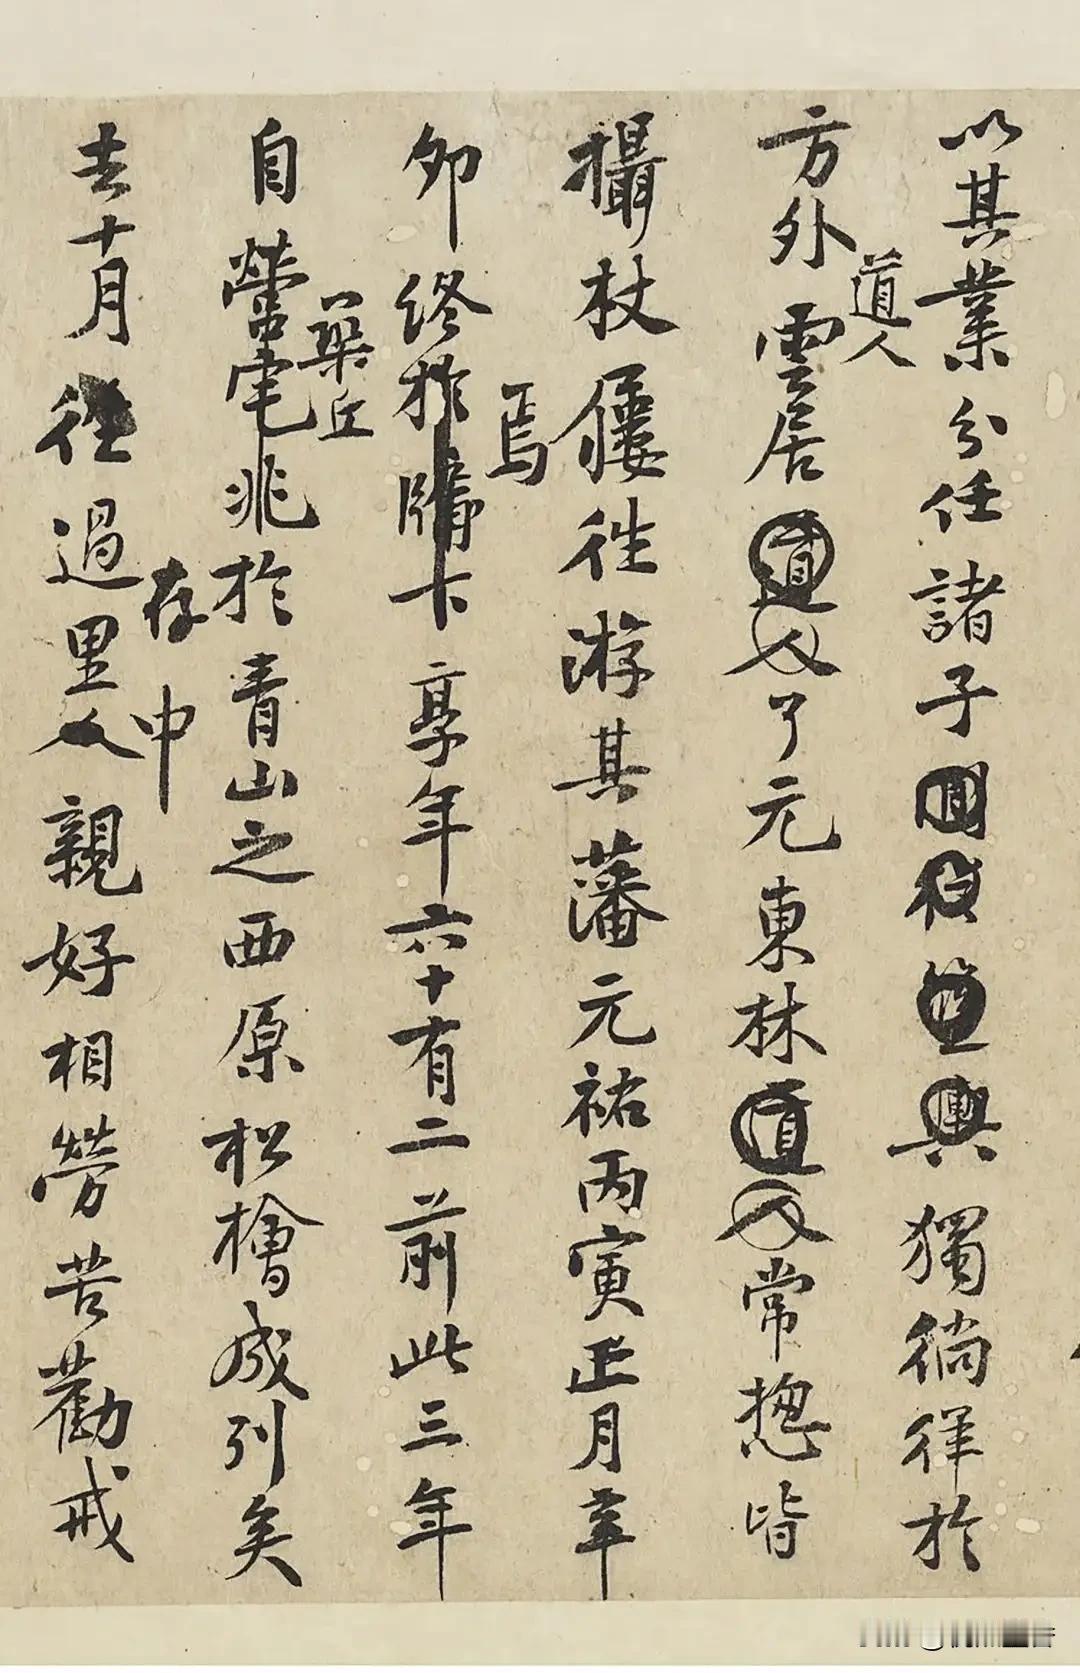 以其業分任諸子獨徜徉於
道人
方外雲居道人了元東林道人常揔皆
攝杖屨往游其藩元祐丙寅正月辛
焉
卯終於牖下享年六十有二前此三年
一丘
自營宅兆於青山之西原松檜成列矣
存中
去十月往過里人親好相勞苦勸戒